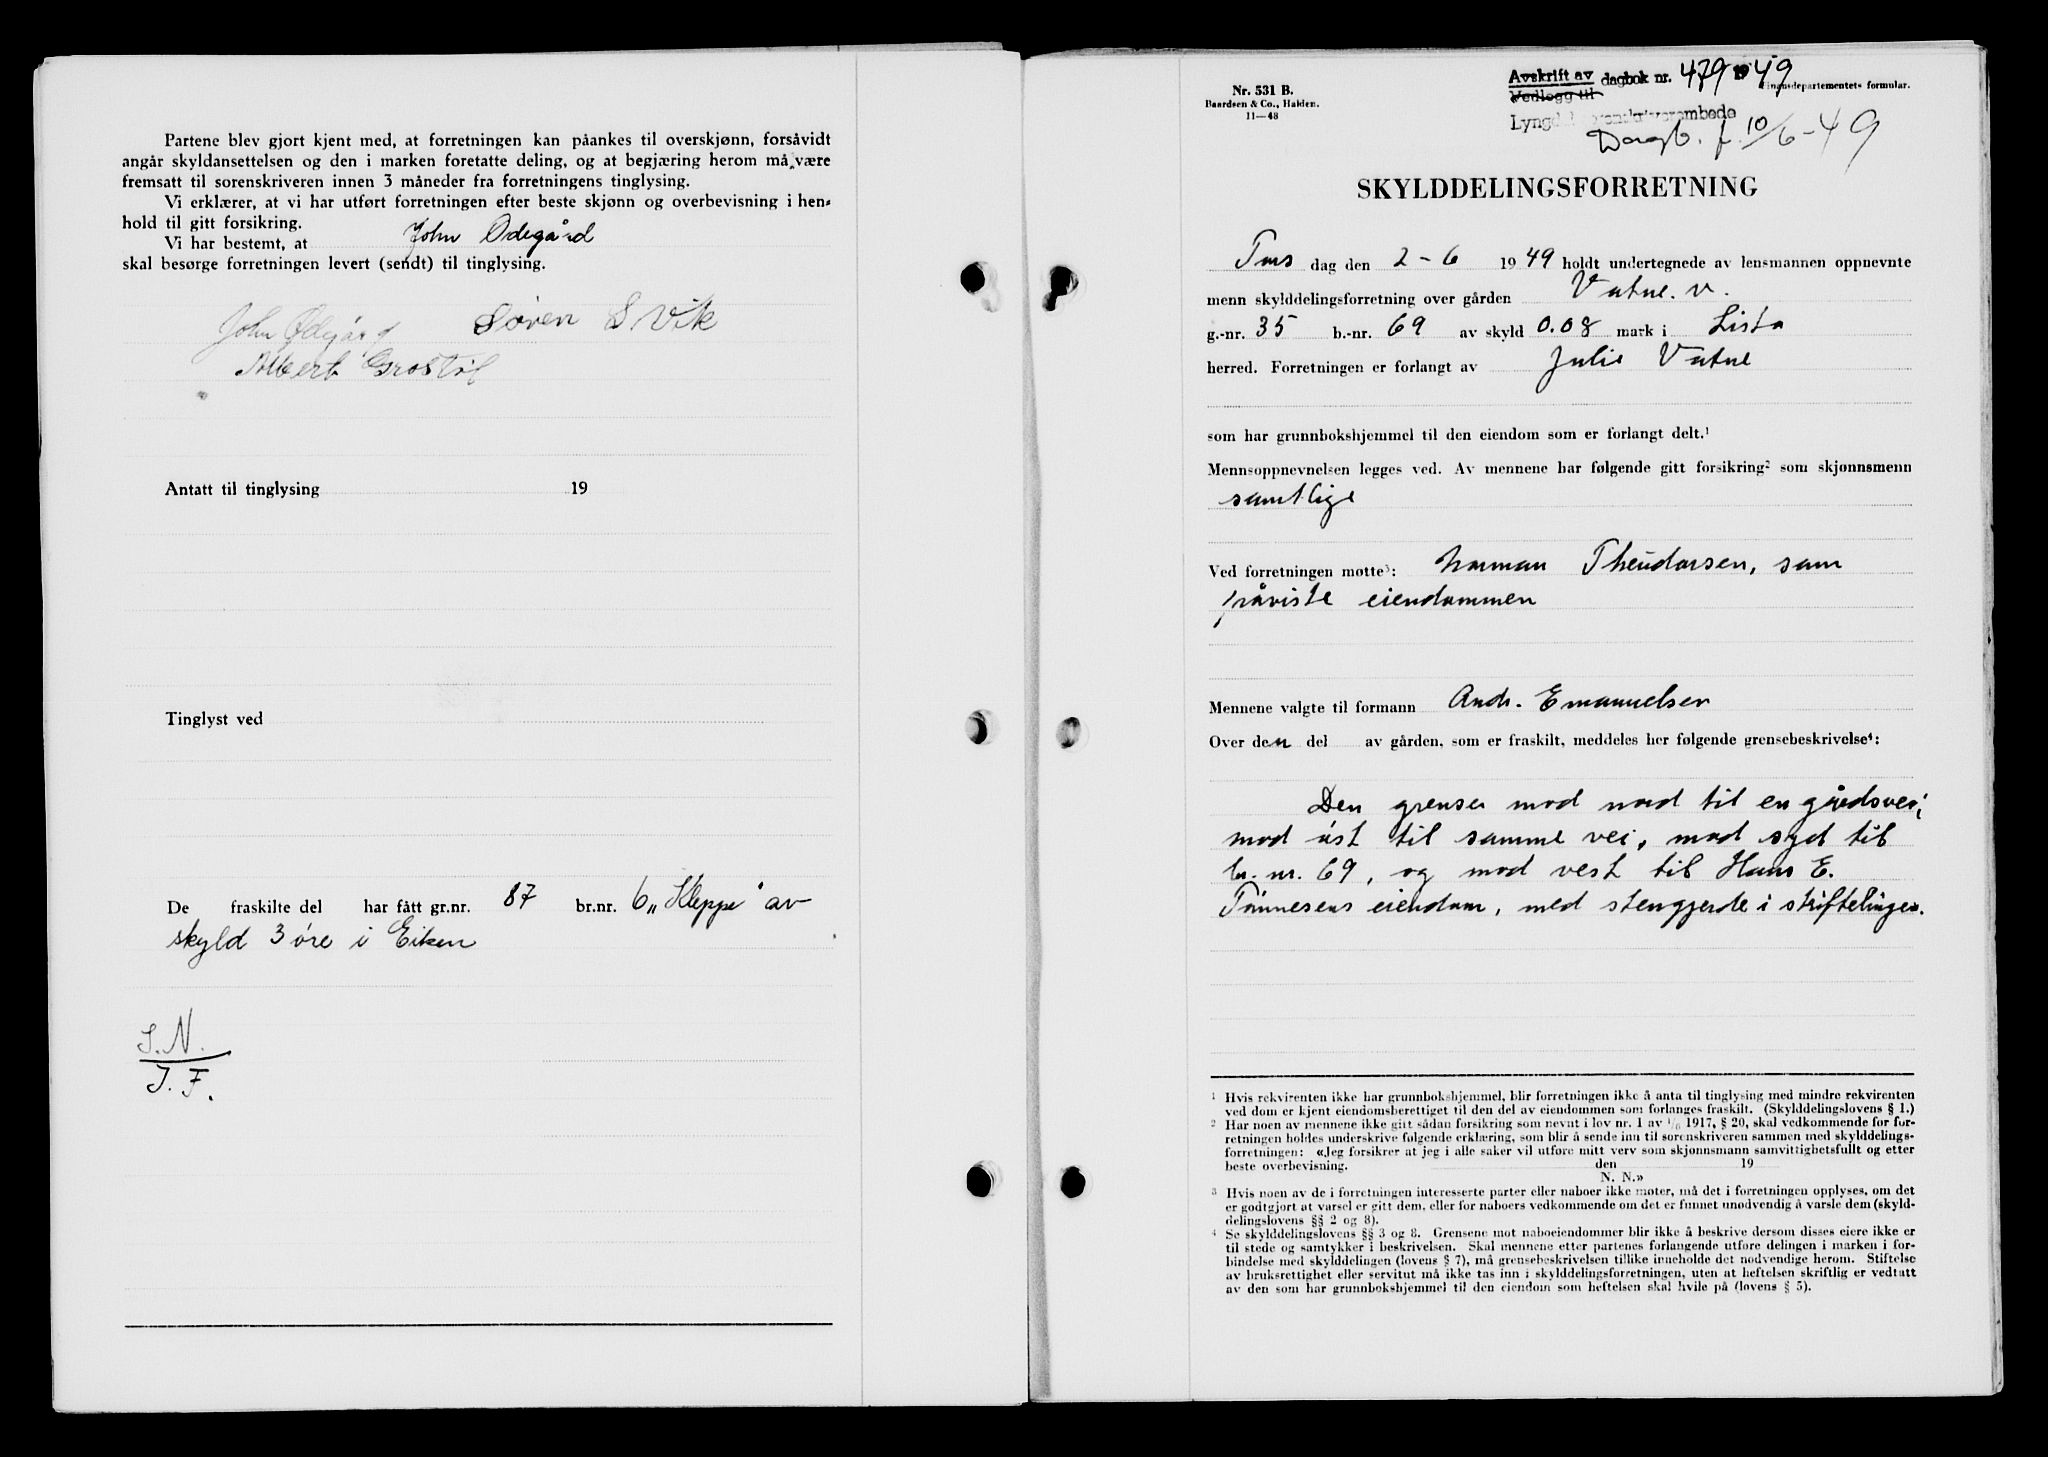 Partene blev gjort kjent med, at forretningen kan påankes til overskjønn, forsåvidt
angår skyldansettelsen og den i marken foretatte deling, og at begjæring herom må være
fremsatt til sorenskriveren innen 3 måneder fra forretningens tinglysing.
Vi erklærer, at vi har utført forretningen efter beste skjønn og overbevisning i hen-
hold til gitt forsikring.
Vi har bestemt, at John Ødegård
skal besørge forretningen levert (sendt) til tinglysing.
John Ødegård Søren S. Vik
Albert Grostøl
Antatt til tinglysing 19
Tinglyst ved
De fraskilte del har fått gr.nr. 87 br.nr. 6 „Kleppe" av
skyld 3 øre i Eiken
S. N.
J. F.
Nr. 531 B.
Baardsen & Co., Halden.
11—48
Avskrift av dagbok nr. 479 1949
Vedlegg til
Finansdepartementets formular.
Lyngdal sorenskriverembede
Dagb. f. 10/6-49
SKYLDDELINGSFORRETNING
Tors dag den 2-6 1949 holdt undertegnede av lensmannen oppnevnte
menn skylddelingsforretning over gården Vatne. v.
g.-nr. 35 b.-nr. 69 av skyld 0.08 mark i Lista
herred. Forretningen er forlangt av Julie Vatne
som har grunnbokshjemmel til den eiendom som er forlangt delt.¹
Mennsoppnevnelsen legges ved. Av mennene har følgende gitt forsikring² som skjønnsmenn
samtlige
Ved forretningen møtte³: Norman Theudorsen, som
påviste eiendommen
Mennene valgte til formann Andr. Emanuelsen
Over den del av gården, som er fraskilt, meddeles her følgende grensebeskrivelse⁴:
Den grenser mod nord til en gårdsvei,
mod øst til samme vei, mod syd til
br. nr. 69, og mod vest til Hans E.
Tønnesens eiendom, med stengjerde i skiftelinjen.
¹ Hvis rekvirenten ikke har grunnbokshjemmel, blir forretningen ikke å anta til tinglysing med mindre rekvirenten
ved dom er kjent eiendomsberettiget til den del av eiendommen som forlanges fraskilt. (Skylddelingslovens § 1.)
² Har noen av mennene ikke gitt sådan forsikring som nevnt i lov nr. 1 av 1/6 1917, § 20, skal vedkommende før for-
retningen holdes underskrive følgende erklæring, som blir å sende inn til sorenskriveren sammen med skylddelings-
forretningen: «Jeg forsikrer at jeg i alle saker vil utføre mitt verv som skjønnsmann samvittighetsfullt og etter
beste overbevisning. den 19
N. N.»
³ Hvis noen av de i forretningen interesserte parter eller naboer ikke møter, må det i forretningen opplyses, om det
er godtgjort at varsel er gitt dem, eller for naboers vedkommende om det er funnet unødvendig å varsle dem (skyld-
delingslovens §§ 2 og 8).
⁴ Se skylddelingslovens §§ 3 og 8. Grensene mot naboeiendommer blir ikke å beskrive dersom disses eiere ikke er
til stede og samtykker i beskrivelsen. Skal mennene etter partenes forlangende utføre delingen i marken i for-
bindelse med skylddelingen (lovens § 7), må grensebeskrivelsen tillike inneholde det nødvendige herom. Stiftelse
av bruksrettighet eller servitut må ikke tas inn i skylddelingsforretningen, uten at heftelsen skriftlig er vedtatt
av den som har grunnbokshjemmel til den eiendom som heftelsen skal hvile på (lovens § 5).